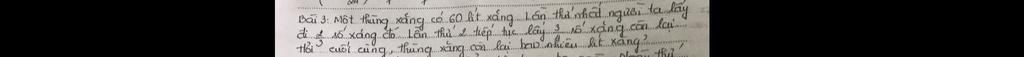 Bài 3: Một thùng xăng có 60 lít xăng. Lần thứ nhất người ta lấy
đi 2 số xăng đó. Lần thứ 2 tiếp tục lấy 3 số xăng còn lại.
Hỏi 3 cuối cùng, thùng xăng còn lại bao nhiêu lít xăng?